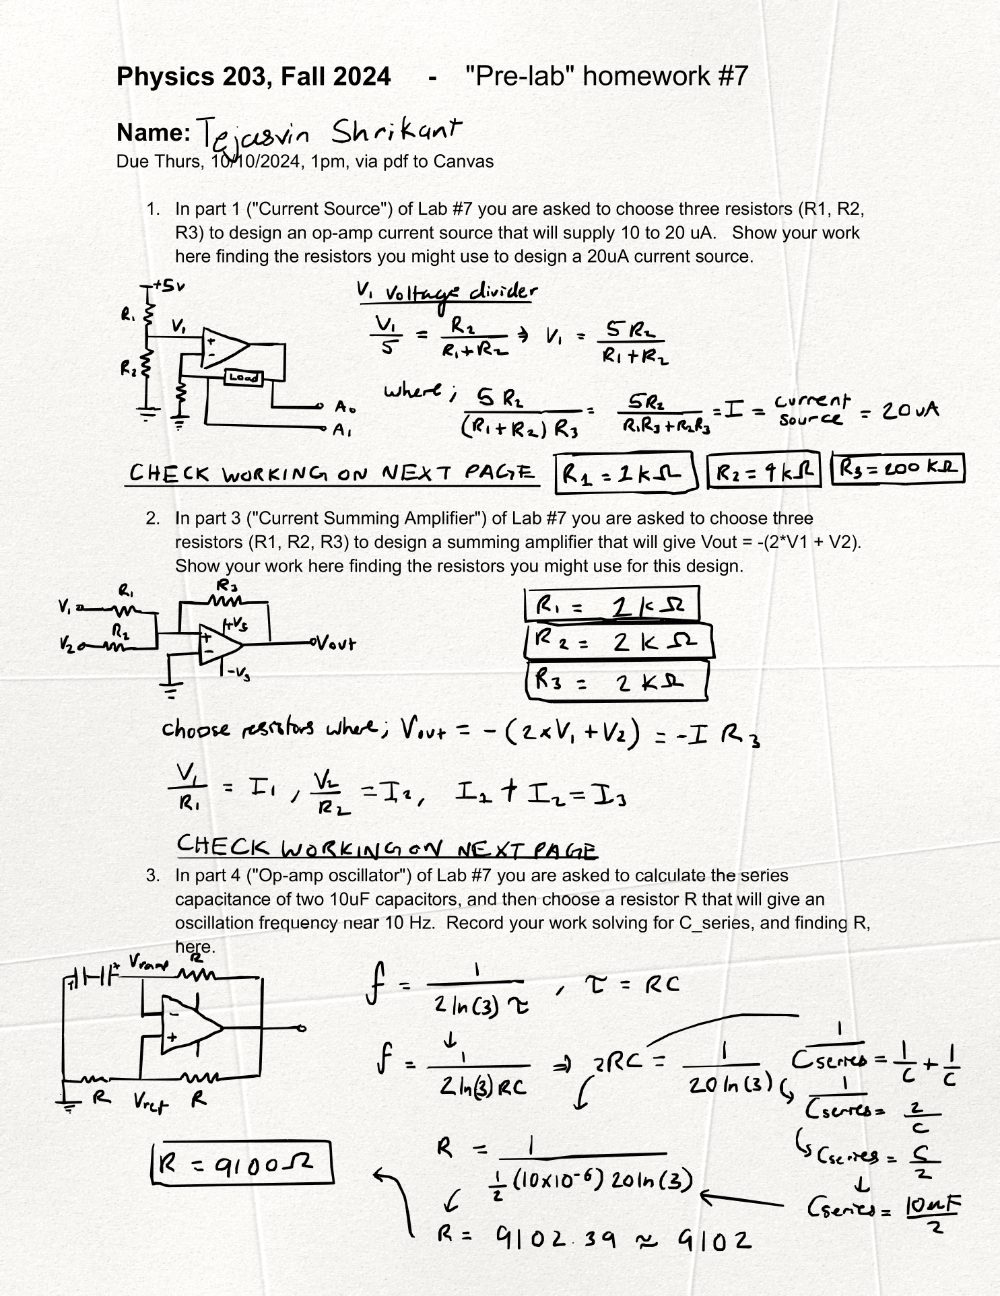 Physics 203, Fall 2024 - "Pre-lab" homework #7
Name: Tejasvin Shrikant
Due Thurs, 10/10/2024, 1pm, via pdf to Canvas
1. In part 1 ("Current Source") of Lab #7 you are asked to choose three resistors (R1, R2,
R3) to design an op-amp current source that will supply 10 to 20 uA. Show your work
here finding the resistors you might use to design a 20uA current source.
+5v
R₁
V₁
R₂
+
-
Load
A₀
A₁
V₁ Voltage divider
V₁/5 = R₂/(R₁+R₂) → V₁ = 5R₂/(R₁+R₂)
where; 5R₂/((R₁+R₂)R₃) = 5R₂/(R₁R₃+R₂R₃) = I = current source = 20uA
CHECK WORKING ON NEXT PAGE R₁ = 1kΩ R₂ = 4kΩ R₃ = 200kΩ
2. In part 3 ("Current Summing Amplifier") of Lab #7 you are asked to choose three
resistors (R1, R2, R3) to design a summing amplifier that will give Vout = -(2*V1 + V2).
Show your work here finding the resistors you might use for this design.
R₁
R₃
V₁
R₂
V₂
+Vs
+
-
-Vs
Vout
R₁ = 1kΩ
R₂ = 2kΩ
R₃ = 2kΩ
choose resistors where; Vout = -(2×V₁+V₂) = -I R₃
V₁/R₁ = I₁, V₂/R₂ = I₂, I₁ + I₂ = I₃
CHECK WORKING ON NEXT PAGE
3. In part 4 ("Op-amp oscillator") of Lab #7 you are asked to calculate the series
capacitance of two 10uF capacitors, and then choose a resistor R that will give an
oscillation frequency near 10 Hz. Record your work solving for C_series, and finding R,
here.
+
R
-
+
R
Vref
R
f = 1/(2ln(3)τ), τ = RC
↓
f = 1/(2ln(3)RC) ⇒ 2RC = 1/(20ln(3))
1/Cseries = 1/C + 1/C
1/Cseries = 2/C
Cseries = C/2
↓
Cseries = 10uF/2
R = 1/(½(10×10⁻⁶)20ln(3))
R = 9102.39 ≈ 9102
R = 9100Ω